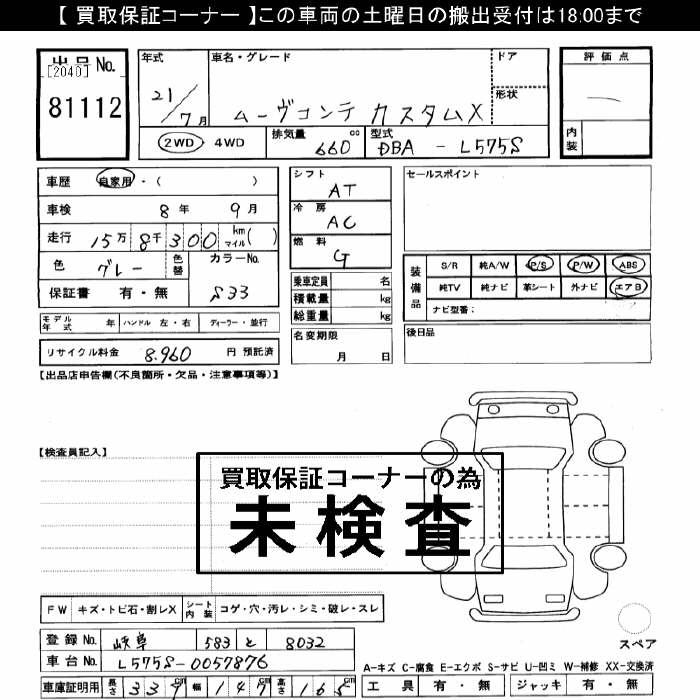 【 買取保証コーナー 】この車両の土曜日の搬出受付は18:00まで
出品 No.
[2040]
81112
年式
21/7月
車名・グレード
ムーヴコンテ カスタムX
ドア
形状
評価点
内装
2WD ・ 4WD
排気量 660 cc
型式 DBA - L575S
車歴 自家用・( )
車検 8年 9月
走行 15万 8千 300 km マイル ( )
色 グレー 色替 カラーNo. S33
保証書 有・無
モデル年式 年 ハンドル 左・右 ディーラー・並行
リサイクル料金 8.960 円 預託済
シフト AT
冷房 AC
燃料 G
乗車定員 名
積載量 kg
総重量 kg
名変期限
月 日
セールスポイント
装備品
S/R 純A/W P/S P/W ABS
純TV 純ナビ 革シート 外ナビ エアB
ナビ型番:
後日品
【出品店申告欄(不良箇所・欠品・注意事項等)】
【検査員記入】
買取保証コーナーの為
未検査
FW キズ・トビ石・割レX シート内装 コゲ・穴・汚レ・シミ・破レ・スレ
登録 No. 岐阜 583 と 8032
車台 No. L575S-0057876
車庫証明用 長さ 339 cm 幅 147 cm 高さ 165 cm
スペア
A-キズ C-腐食 E-エクボ S-サビ U-凹ミ W-補修 XX-交換済
工具 有・無 ジャッキ 有・無